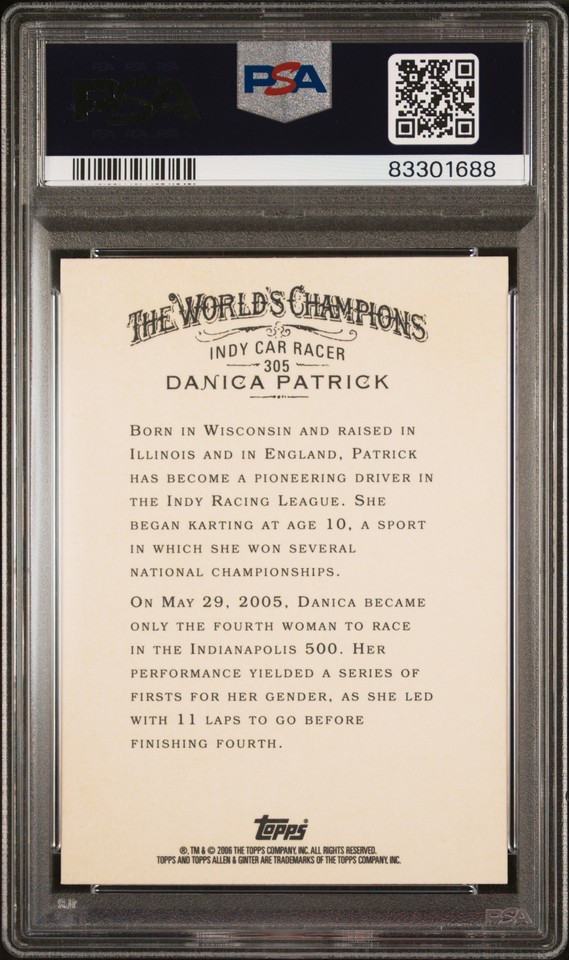 PSA
PSA
83301688
THE WORLD'S CHAMPIONS
INDY CAR RACER
305
DANICA PATRICK
BORN IN WISCONSIN AND RAISED IN
ILLINOIS AND IN ENGLAND, PATRICK
HAS BECOME A PIONEERING DRIVER IN
THE INDY RACING LEAGUE. SHE
BEGAN KARTING AT AGE 10, A SPORT
IN WHICH SHE WON SEVERAL
NATIONAL CHAMPIONSHIPS.
ON MAY 29, 2005, DANICA BECAME
ONLY THE FOURTH WOMAN TO RACE
IN THE INDIANAPOLIS 500. HER
PERFORMANCE YIELDED A SERIES OF
FIRSTS FOR HER GENDER, AS SHE LED
WITH 11 LAPS TO GO BEFORE
FINISHING FOURTH.
Topps
®, TM & © 2006 THE TOPPS COMPANY, INC. ALL RIGHTS RESERVED.
TOPPS AND TOPPS ALLEN & GINTER ARE TRADEMARKS OF THE TOPPS COMPANY, INC.
PSA